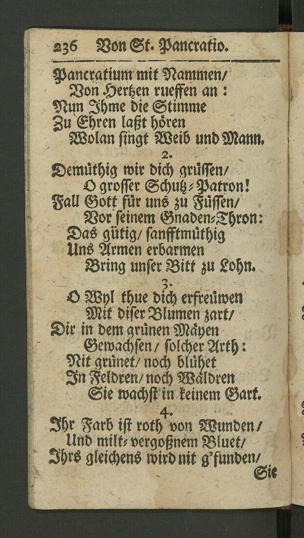 236 Von St. Pancratio.
Pancratium mit Nammen/
Von Hertzen rueffen an:
Nun Ihme die Stimme
Zu Ehren laßt hören
Wolan singt Weib und Mann.
2.
Demüthig wir dich grüssen/
O grosser Schutz-Patron!
Fall Gott für uns zu Füssen/
Vor seinem Gnaden-Thron:
Das gütig/ sanfftmüthig
Uns Armen erbarmen
Bring unser Bitt zu Lohn.
3.
O Wyl thue dich erfreüwen
Mit diser Blumen zart/
Dir in dem grünen Mäyen
Gewachsen/ solcher Arth:
Nit grünet/ noch blühet
In Feldren/ noch Wäldren
Sie wachst in keinem Gart.
4.
Ihr Farb ist roth von Wunden/
Und milt-vergoßnem Bluet/
Ihrs gleichens wird nit g'funden/
Sie